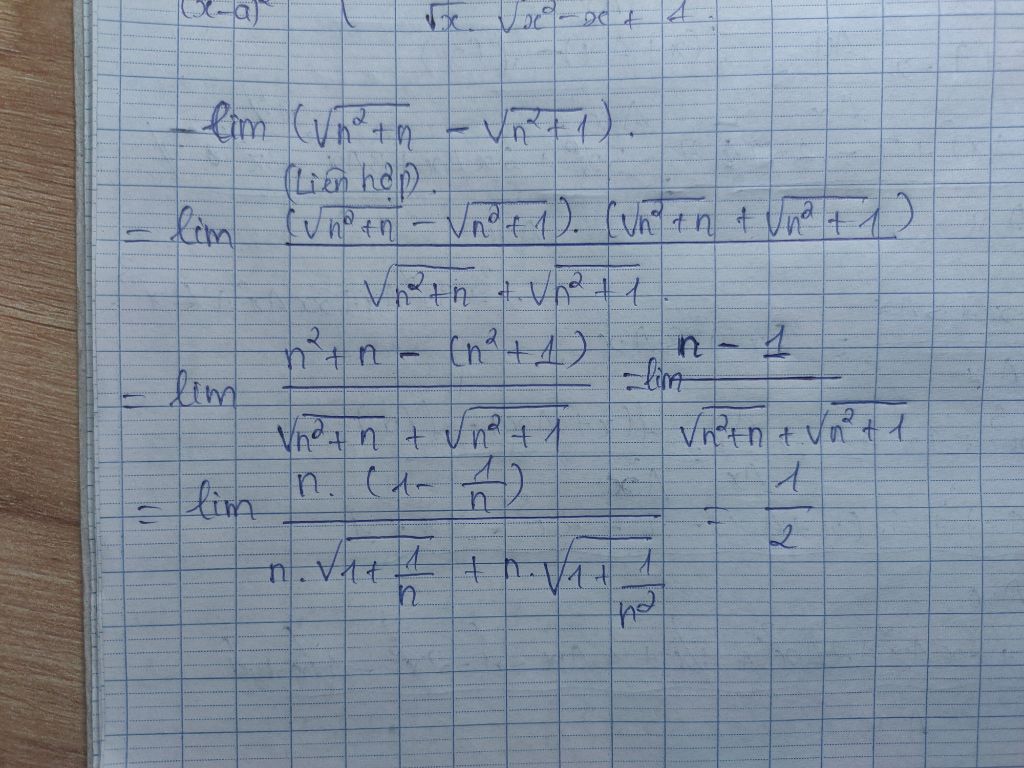 (x-a)² ( √x. √x²-x + 1.
- lim (√n²+n - √n²+1).
(Liên hợp).
= lim (√n²+n - √n²+1). (√n²+n + √n²+1)
√n²+n + √n²+1.
= lim n²+n - (n²+1) = lim n - 1
√n²+n + √n²+1 √n²+n + √n²+1
= lim n. (1- 1/n) = 1/2
n. √1+ 1/n + n. √1+ 1/n²